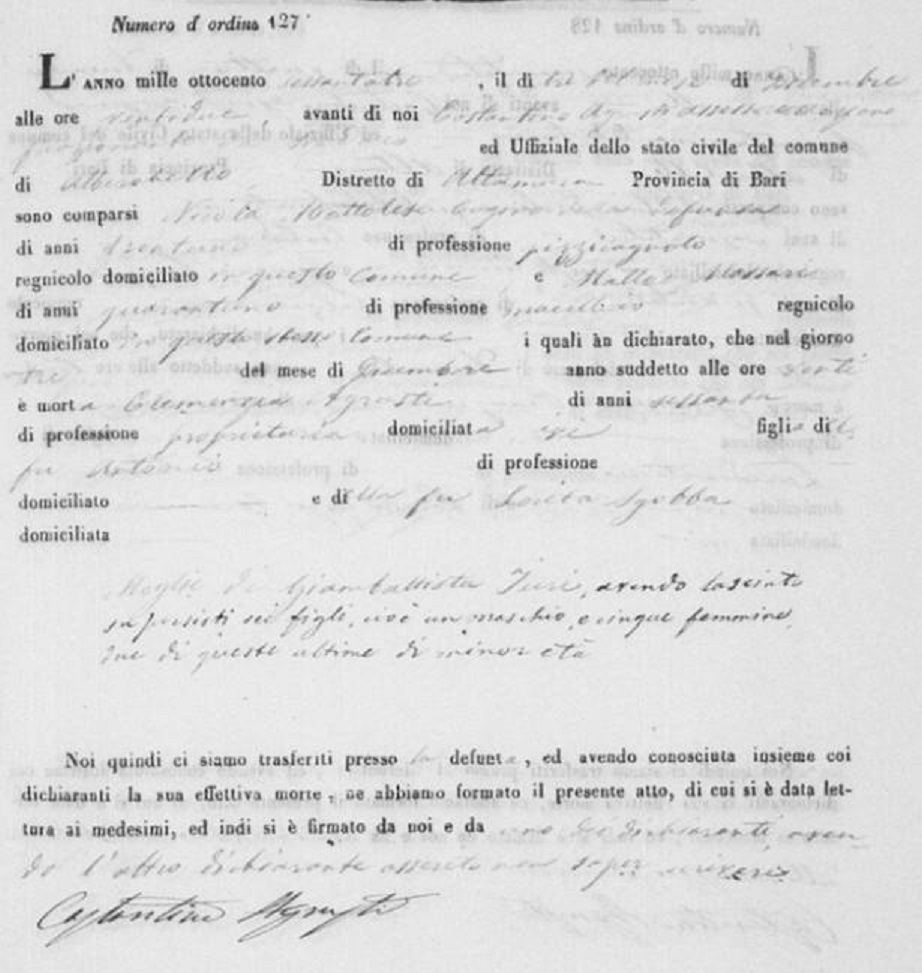 Numero d' ordine 127
L' ANNO mille ottocento sessantatre , il dì tre del mese di Dicembre
alle ore ventidue avanti di noi Costantino Agrusti assessore
ed Uffiziale dello stato civile del comune
di Alberobello Distretto di Altamura Provincia di Bari
sono comparsi Nicola della defunta
di anni trentuno di professione pizzicagnolo
regnicolo domiciliato in questo Comune e
di anni quarantuno di professione regnicolo
domiciliato in questo stesso Comune i quali àn dichiarato, che nel giorno
tre del mese di Dicembre anno suddetto alle ore venti
è morta Clementina Agrusti di anni sessanta
di professione proprietaria domiciliata ivi figlia di
fu Antonio di professione
domiciliato e della fu Sgobba
domiciliata
Moglie di Giambattista Turi, avendo lasciato
superstiti sei figli, cioè un maschio, e cinque femmine,
due di queste ultime di minor età
Noi quindi ci siamo trasferiti presso la defunta, ed avendo conosciuta insieme coi
dichiaranti la sua effettiva morte, ne abbiamo formato il presente atto, di cui si è data let-
tura ai medesimi, ed indi si è firmato da noi e da uno dei dichiaranti, aven-
do l'altro dichiarante asserito non saper scrivere
Costantino Agrusti